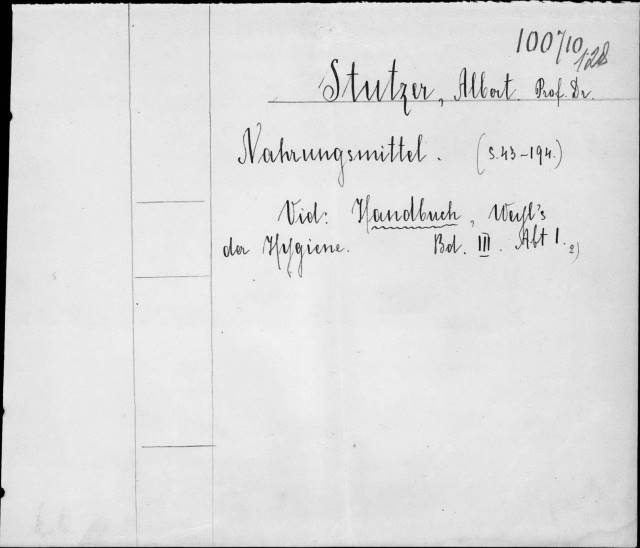 100710/128
Stutzer, Albert. Prof. Dr.
Nahrungsmittel. (S. 43-194.)
Vid: Handbuch, Weyl's
der Hygiene. Bd. III. Abt 1. 2)